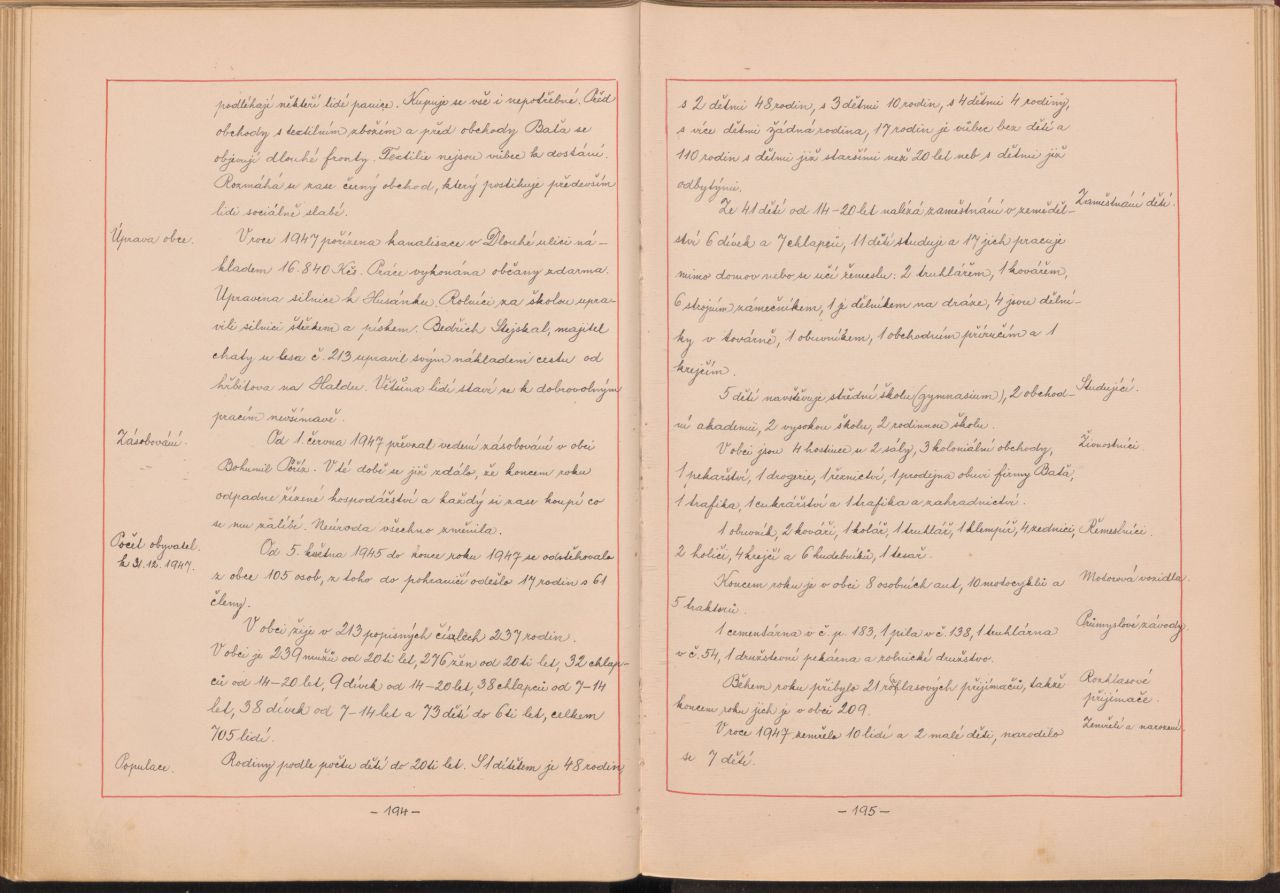 podléhají někteří lidé panice. Kupuje se vše i nepotřebné. Před
obchody s textilním zbožím a před obchody Baťa se
objevují dlouhé fronty. Textilie nejsou vůbec k dostání.
Rozmáhá se zase černý obchod, který postihuje především
lidi sociálně slabé.
Úprava obce.
V roce 1947 pořízena kanalisace v Dlouhé ulici ná-
kladem 16.840 Kčs. Práce vykonána občany zdarma.
Upravena silnice k Husánku. Rolníci za školou upra-
vili silnici štěrkem a pískem. Bedřich Stejskal, majitel
chaty u lesa č. 213 upravil svým nákladem cestu od
hřbitova na Haldu. Většina lidí staví se k dobrovolným
pracím nevšímavě.
Zásobování.
Od 1. června 1947 převzal vedení zásobování v obci
Bohumil Pöříz. V té době se již zdálo, že koncem roku
odpadne řízené hospodářství a každý si zase koupí co
se mu zalíbí. Neúroda všechno změnila.
Počet obyvatel
k 31.12.1947.
Od 5. května 1945 do konce roku 1947 se odstěhovalo
z obce 105 osob, z toho do pohraničí odešlo 17 rodin s 61
členy.
V obci žije v 213 popisných číslech 237 rodin.
V obci je 239 mužů od 20ti let, 276 žen od 20ti let, 32 chlap-
ců od 14-20 let, 9 dívek od 14-20 let, 38 chlapců od 7-14
let, 38 dívek od 7-14 let a 73 dětí do 6ti let, celkem
705 lidí.
Populace.
Rodiny podle počtu dětí do 20ti let. S 1 dítětem je 48 rodin,
- 194 -
s 2 dětmi 48 rodin, s 3 dětmi 10 rodin, s 4 dětmi 4 rodiny,
s více dětmi žádná rodina, 17 rodin je vůbec bez dětí a
110 rodin s dětmi již staršími než 20 let neb s dětmi již
odbytými.
Zaměstnání dětí.
Ze 41 dětí od 14-20 let nalézá zaměstnání v zeměděl-
ství 6 dívek a 7 chlapců, 11 dětí studuje a 17 jich pracuje
mimo domov nebo se učí řemeslu: 2 truhlářem, 1 kovářem,
6 strojním zámečníkem, 1 je dělníkem na dráze, 4 jsou dělní-
ky v továrně, 1 obuvníkem, 1 obchodním příručím a 1
krejčím.
Studující.
5 dětí navštěvuje střední školu (gymnasium), 2 obchod-
ní akademii, 2 vysokou školu, 2 rodinnou školu.
Živnostníci.
V obci jsou 4 hostince se 2 sály, 3 koloniální obchody,
1 pekařství, 1 drogerie, 1 řeznictví, 1 prodejna obuvi firmy Baťa,
1 trafika, 1 cukrářství a 1 trafika a zahradnictví.
Řemeslníci.
1 obuvník, 2 kováři, 1 kolář, 1 truhlář, 1 klempíř, 4 zedníci,
2 holiči, 4 krejčí a 6 hudebníků, 1 tesař.
Motorová vozidla.
Koncem roku je v obci 8 osobních aut, 10 motocyklů a
5 traktorů.
Průmyslové závody.
1 cementárna v č.p. 183, 1 pila v č. 138, 1 truhlárna
v č. 54, 1 družstevní pekárna a rolnické družstvo.
Rozhlasové
přijímače.
Během roku přibylo 21 rozhlasových přijímačů, takže
koncem roku jich je v obci 209.
Zemřelí a narození.
V roce 1947 zemřelo 10 lidí a 2 malé děti, narodilo
se 7 dětí.
- 195 -